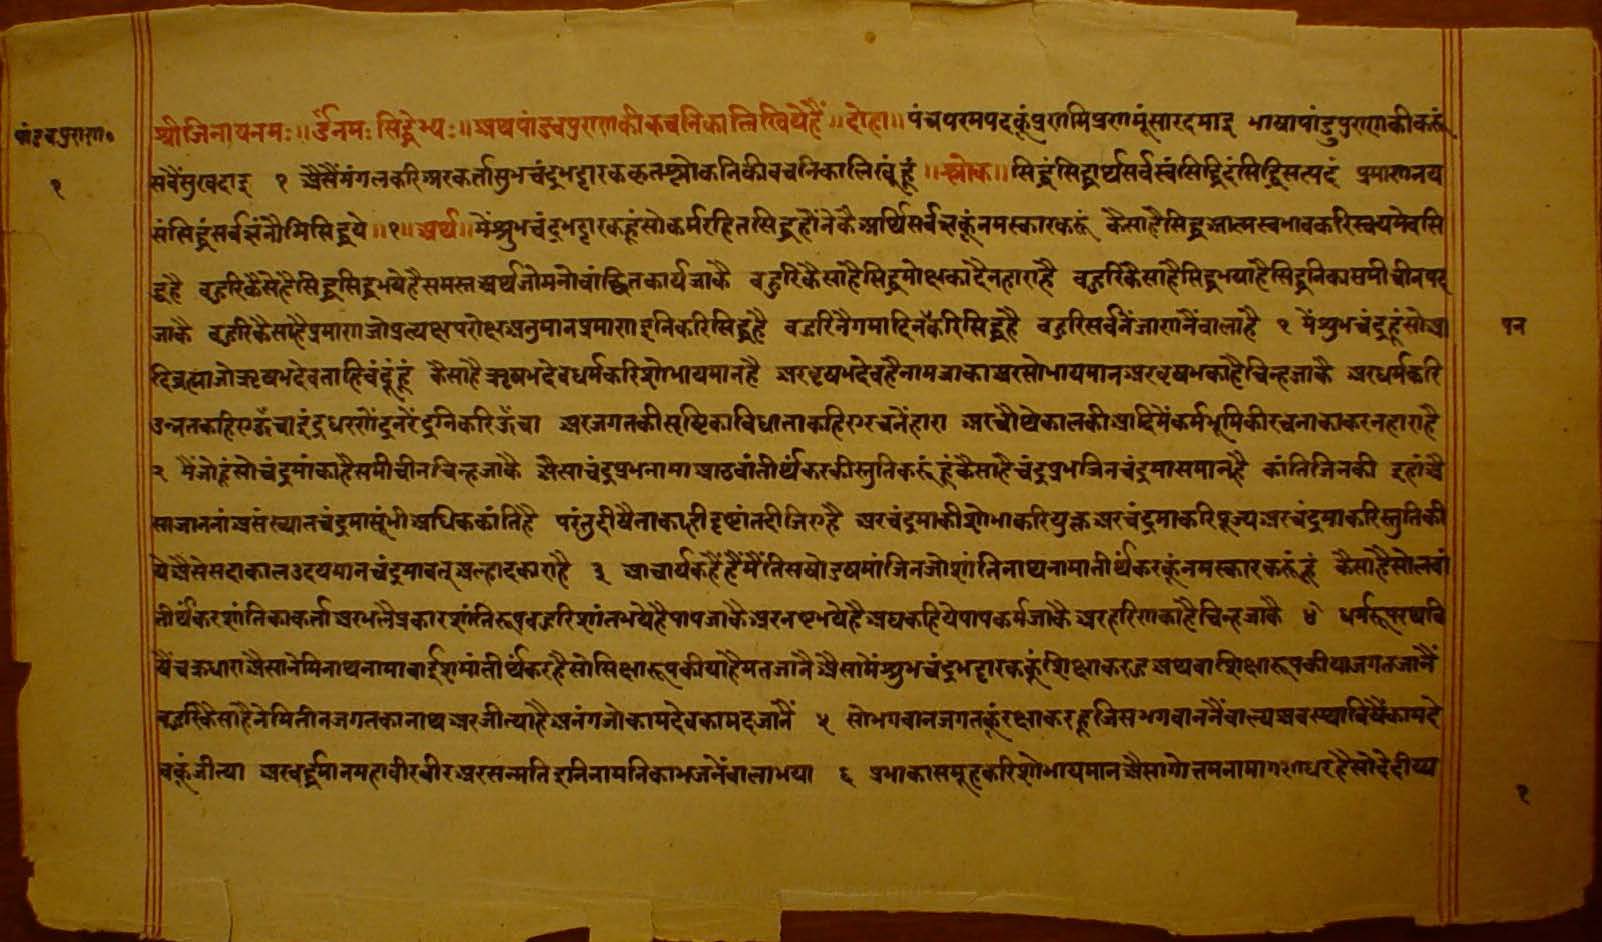 पांडवपुराण॰
१
श्रीजिनायनमः॥ॐनमःसिद्धेभ्यः॥अथपांडवपुराणकीवचनिकालिखियेहैं॥दोहा॥पंचपरमपदकूंप्रणमिप्रणमूंसारदमाइ भाषापांडुपुराणकीकरूं
सबैंसुखदाइ १ अैसैंमंगलकरिअरकर्तासुभचंद्रभट्टारककृतश्लोकनिकीवचनिकालिखूंहूं॥श्लोक॥सिद्धंसिद्धार्थसर्वस्वंसिद्धिदंसिद्धिसत्पदं प्रमाणनय
संसिद्धंसर्वज्ञंनौमिसिद्धये॥१॥अर्थ॥मेंश्रुभचंद्रभट्टारकहूंसोकर्मरहितसिद्धहोंनेकैअर्थिसर्वज्ञकूंनमस्कारकरूं कैसाहैसिद्धआत्मस्वभावकरिस्वयमेवसि
द्धहै बहुरिकैसेहैसिद्धसिद्धभयेहैसमस्तअर्थजोमनोवांछितकार्यजाकै बहुरिकैसाहैसिद्धमोक्षकादैनहाराहै बहुरिकैसाहैसिद्धभयाहैसिद्धनिकासमीचीनपद
जाकै बहुरिकैसाहैप्रमाणजोप्रत्यक्षपरोक्षअनुमानप्रमाणइनिकरिसिद्धहै बहुरिनैगमादिनकरिसिद्धहै बहुरिसर्वनैंजाणनैंवालाहै १ मेंश्रुभचंद्रहूंसोआ
दिब्रह्माजोऋषभदेवताहिवंदूंहूं कैसाहैऋषभदेवधर्मकरिशोभायमानहै अरवृषभदेवहैनामजाकाअरसोभायमानअरवृषभकाहैचिन्हजाकै अरधर्मकरि
उन्नतकहिएऊँचाइंद्रधरणेंद्रनरेंद्रनिकरिऊँचा अरजगतकीसृष्टिकाविधाताकहिएरचनेंहारा अरचौथेकालकीआदिमेंकर्मभूमिकीरचनाकाकरनहाराहै
२ मैंजोहूंसोचंद्रमांकाहैसमीचीनचिन्हजाकै अैसाचंद्रप्रभनामाआठवांतीर्थंकरकीस्तुतिकरूंहूंकैसाहैचंद्रप्रभजिनचंद्रमासमानहै कांतिजिनकी इहांअै
साजाननांअसंख्यातचंद्रमासूंभीअधिककांतिहै परंतुहीयैताकाहीदृष्टांतदीजिएहै अरचंद्रमाकीशोभाकरियुक्तअरचंद्रमाकरिपूज्यअरचंद्रमाकरिस्तुतिकी
येअैसेसदाकालउदयमानचंद्रमावत्अल्हादकाराहै ३ आचार्यकहैंहैंमैंतिसषोडषमांजिनजोशांतिनाथनामातीर्थंकरकूंनमस्कारकरूंहूं कैसाहैसोलवां
तीर्थंकरशांतिकाकर्ताअरभलैप्रकारशांतिरूपबहुरिशांतभयेहैपापजाकैअरनष्टभयेहैअघकहियेपापकर्मजाकैअरहरिणकाहैचिन्हजाकै ४ धर्मरूपरथवि
षैंचक्रधाराअैसानेमिनाथनामाबाईशमांतीर्थंकरहैसोसिक्षारूपकीयाहैमतजानैअैसामेंश्रुभचंद्रभट्टारककूंशिक्षाकरहूअथवाशिक्षारूपकीयाजगतजानैं
बहुरिकैसाहैनेमितीनजगतकानाथअरजीत्याहैअनंगजोकामदेवकामदजानैं ५ सोभगवानजगतकूंरक्षाकरहूजिसभगवाननैंबाल्यअवस्थाविषैंकामदे
वकूंजीत्या अरवर्द्धमानमहावीरवीरअरसन्मतिइनिनामनिकाभजनेंवालाभया ६ प्रभाकासमूहकरिशोभायमानअैसागोत्तमनामागणधरहैसोदेदीप्य
पत्र
१